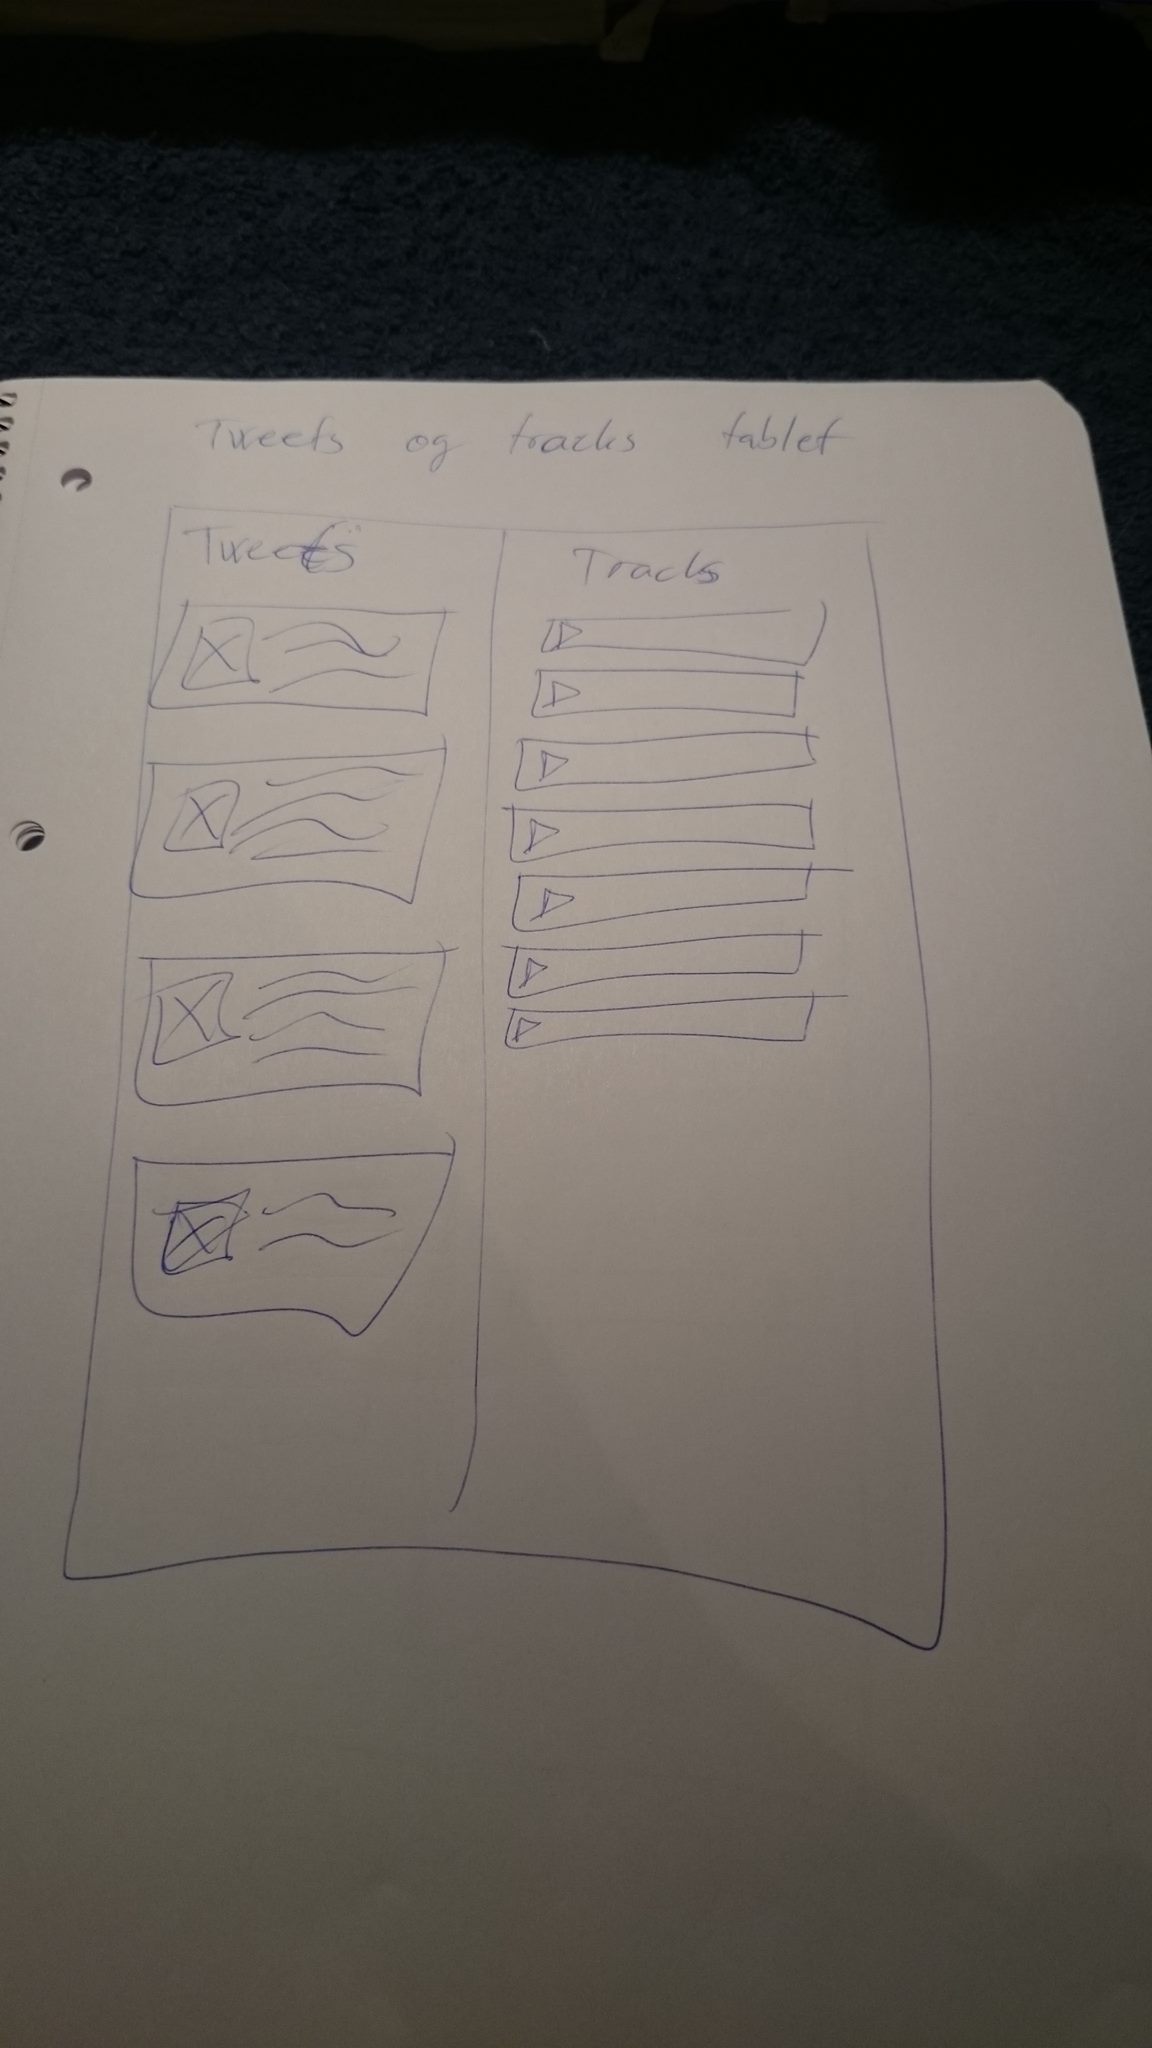 Tweets og tracks tablet
Tweets
Tracks